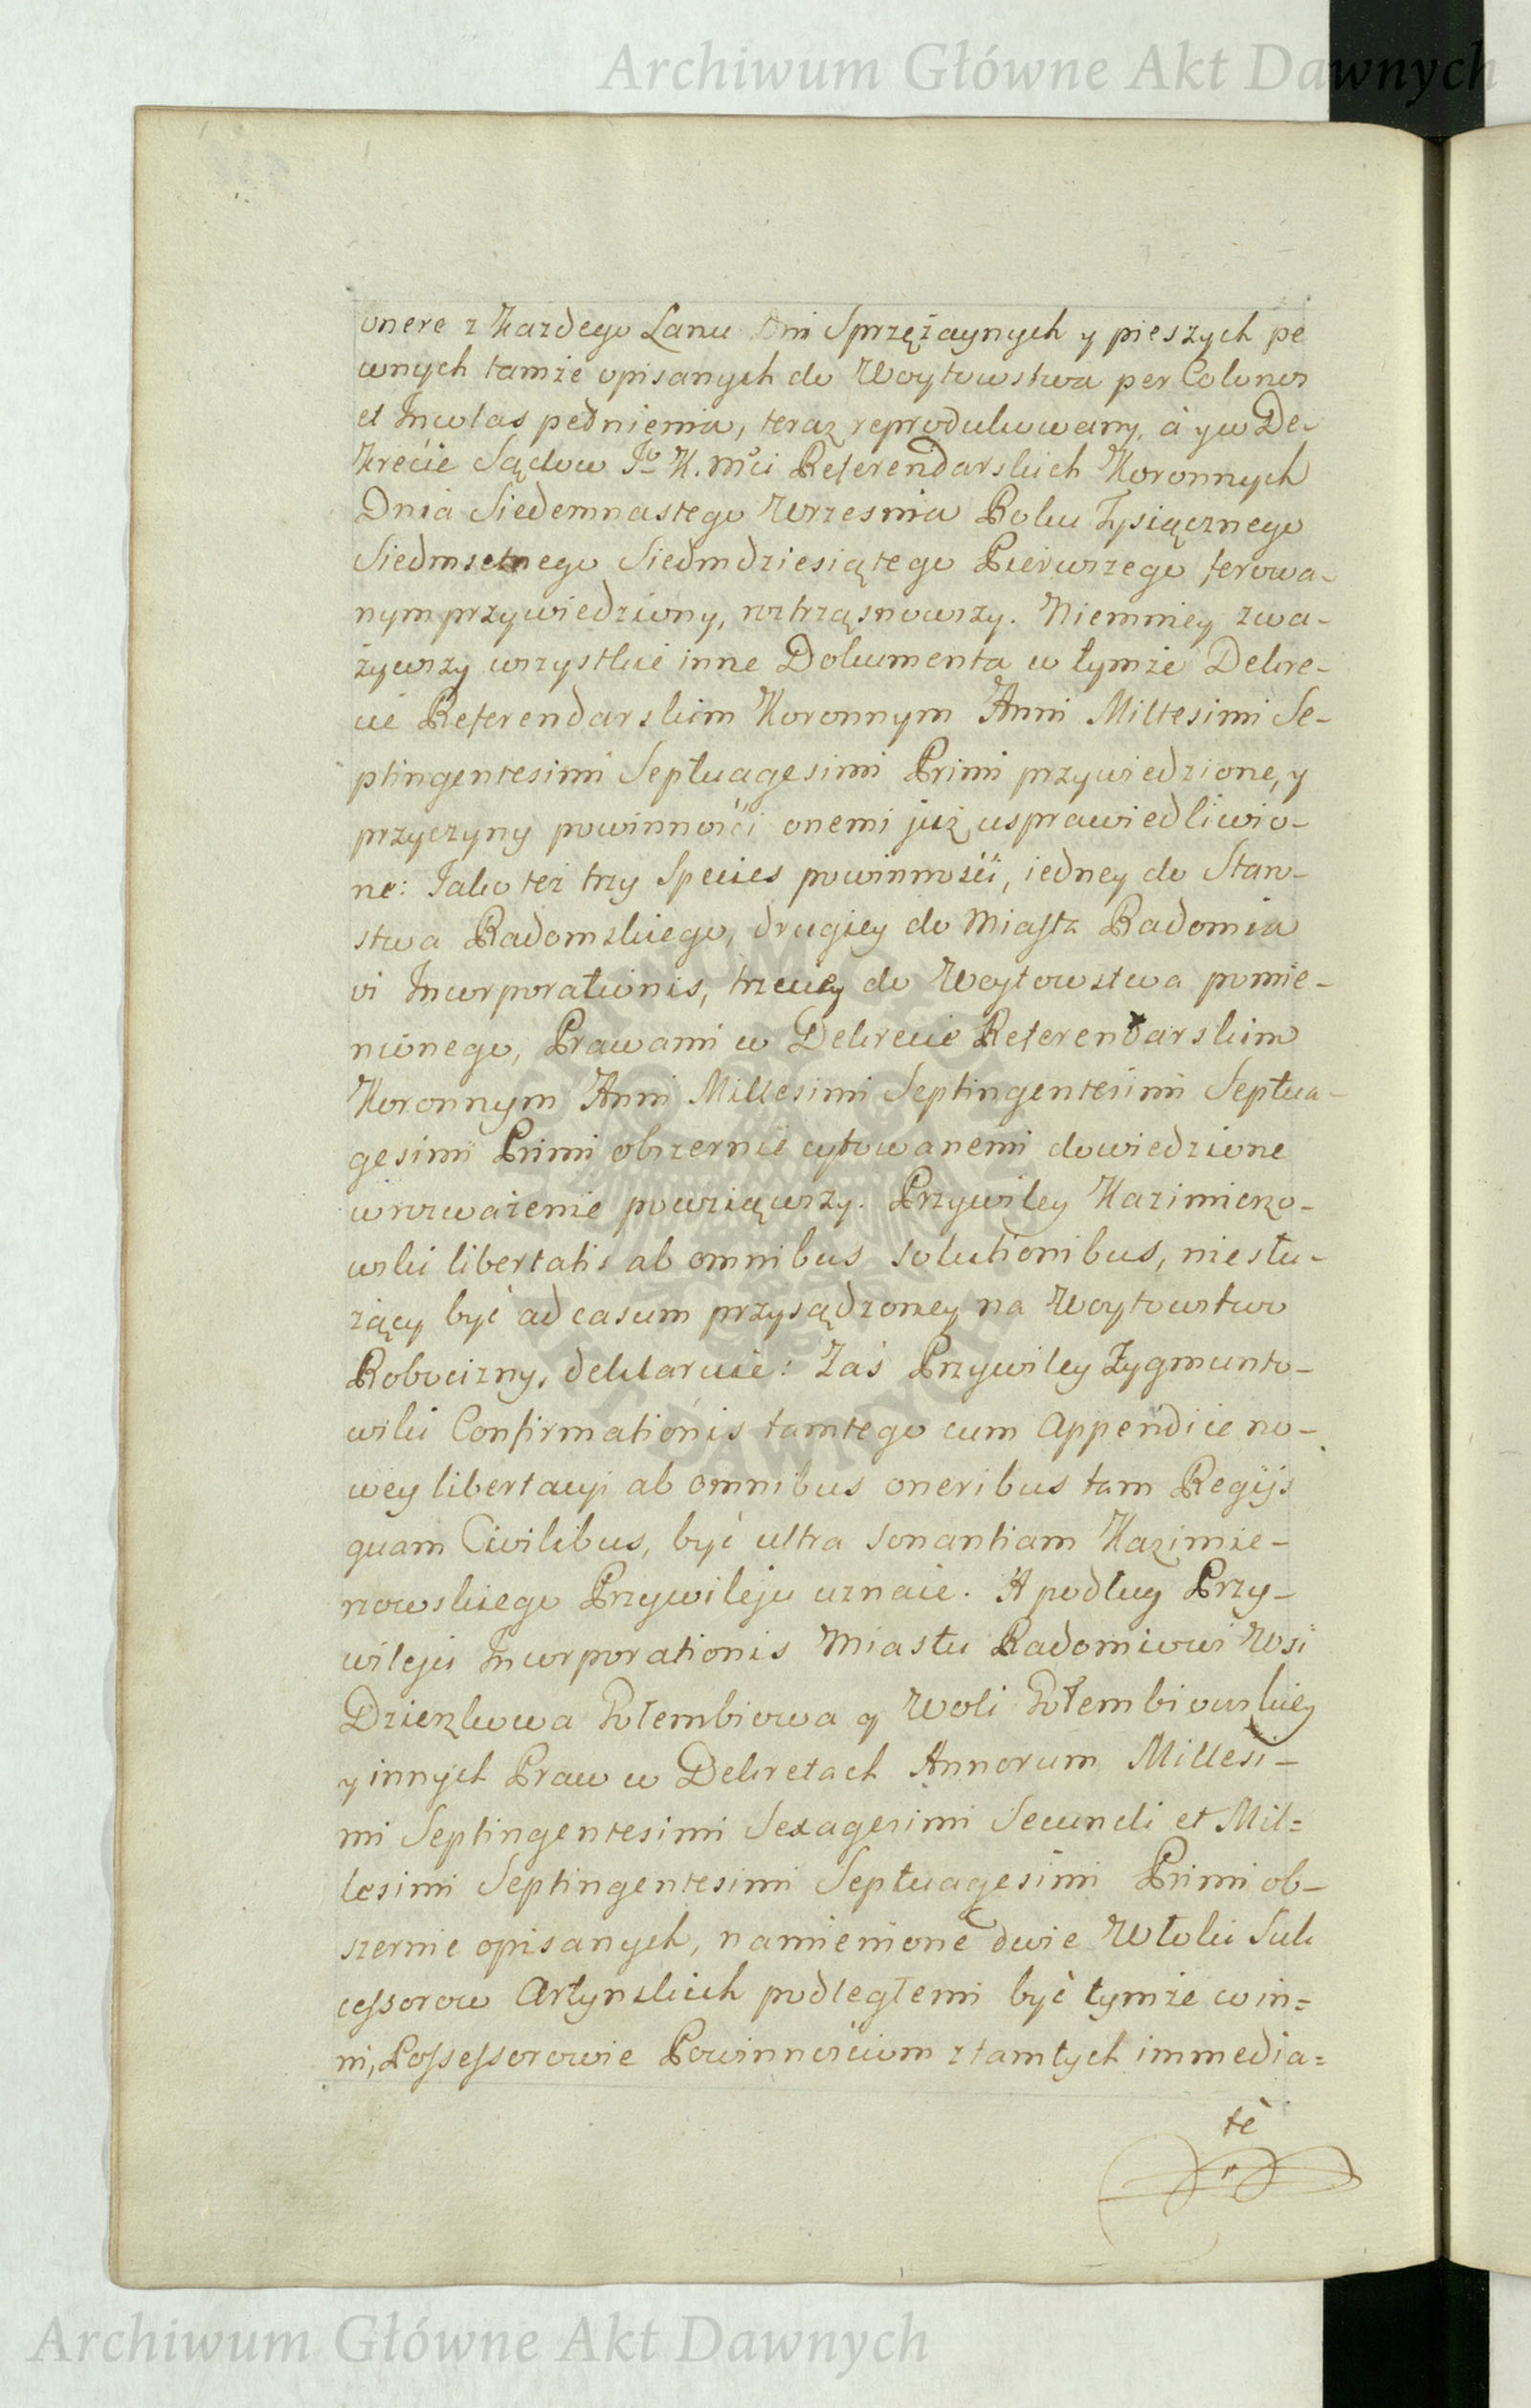 Archiwum Główne Akt Dawnych
onere z Kazdego Łanu Dni Sprzężaynych y pieszych pe
wnych tamże opisanych do Woytowstwa per Colonos
et Incolas pełnienia, teraz reprodukowany, à y w De-
krecie Sądow Jº K. Mci Referendarskich Koronnych
Dnia Siedemnastego Wrzesnia Roku Tysiącznego
Siedmsetnego Siedmdziesiątego Pierwszego ferowa-
nym przywiedziony, roztrząsnowszy. Niemniey zwa-
żywszy wszystkie inne Dokumenta w tymże Dekre-
cie Referendarskim Koronnym Anni Millesimi Se-
ptingentesimi Septuagesimi Primi przywiedzione, y
przyczyny powinności onemi już usprawiedliwio-
ne: Jako też trzy Species powinności, iedney do Staro-
stwa Radomskiego, drugiey do Miasta Radomia
vi Incorporationis, trzeciey do Woytowstwa pomie-
nionego, Prawami w Dekrecie Referendarskim
Koronnym Anni Millesimi Septingentesimi Septua-
gesimi Primi obszernie cytowanemi dowiedzione
w rozważenie powziąwszy. Przywiley Kazimierzo-
wski libertatis ab omnibus solutionibus, niesłu-
żący być ad casum przysądzoney na Woytowstwo
Robocizny, deklaruie: Zaś Przywiley Zygmunto-
wski Confirmationis tamtego cum Appendice no-
wey libertacyi ab omnibus oneribus tam Regijs
quam Civilibus, być ultra sonantiam Kazimie-
rzowskiego Przywileju uznaie. A podług Przy-
wileju Incorporationis Miastu Radomiowi Wsi
Dzierzkowa Gołembiowa y Woli Gołembiowskiey
y innych Praw w Dekretach Annorum Millesi-
mi Septingentesimi Sexagesimi Secundi et Mil=
lesimi Septingentesimi Septuagesimi Primi ob-
szernie opisanych, namienione dwie Włoki Suk
cessorow Artynskich podległemi być tymże win=
ni, Possessorowie Powinnościom z tamtych immedia=
tè
Archiwum Główne Akt Dawnych